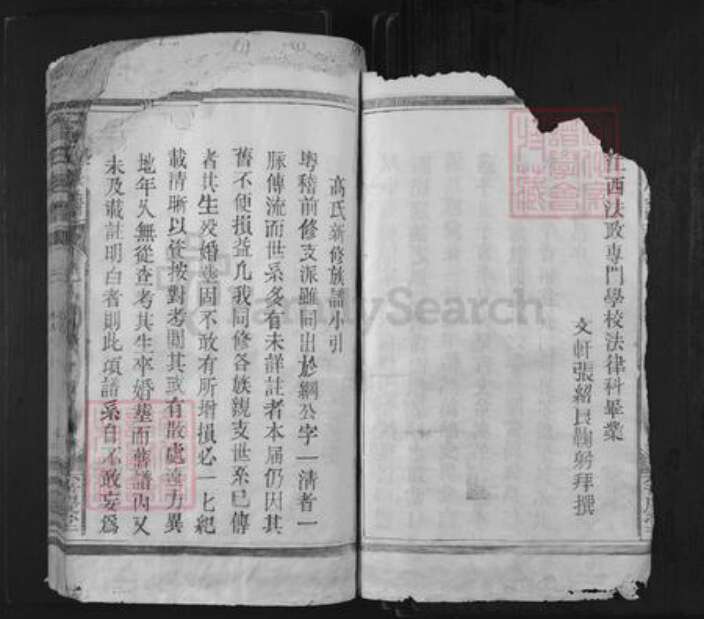 江西法政專門學校法律科畢業
文軒張紹良鞠躬拜撰
高氏新修族譜小引
粵稽前修支派雖同出於綱公字一清者一
脉傳流而世系多有未詳註者本屆仍因其
舊不便損益凡我同修各族親支世系已傳
者其生歿婚塟固不敢有所增損必一七紀
載清晰以從按對考閱其或有散處遠方異
地年久無從查考其生卒婚塟而舊譜內又
未及載註明白者則此項譜系自不敢妄爲
FamilySearch